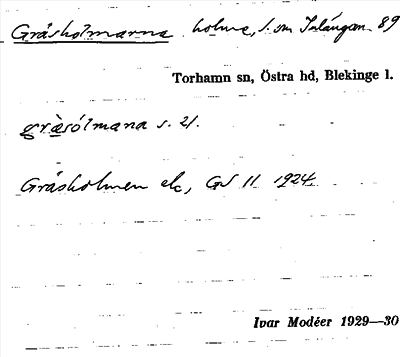 Gråsholmarna holme, s. om Inlängan 89
Torhamn sn, Östra hd, Blekinge l.
gràsólmana s. 21.
Gråsholmen ek, GV 11 1924.
Ivar Modéer 1929—30